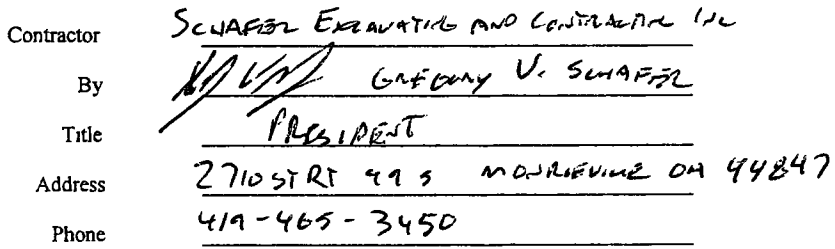 Contractor SCHAFER EXCAVATING AND CONTRACTING INC
By GREGORY V. SCHAFER
Title PRESIDENT
Address 2710 ST RT 99 S MONROEVILLE OH 44847
Phone 419-465-3450